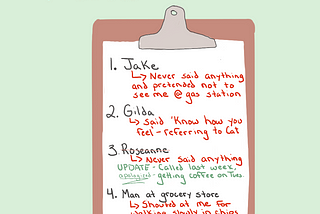 1. Jake
↳ Never said anything
and pretended not to
see me @ gas station
2. Gilda
↳ said "Know how you
feel - referring to Cat
3. Roseanne
↳ Never said anything
UPDATE - Called last week,
apologized - getting coffee on Tues.
4. Man at grocery store
↳ Shouted at me for
walking slowly in chips